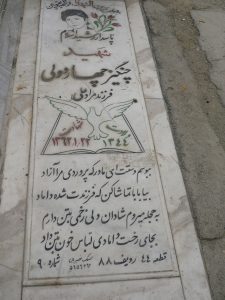 پاسدار رشید اسلام
شهید
چنگیز چهارمولی
فرزند مراد علی
۱۳۴۴
۱۳۶۲.۱.۲۲
ببوسم دستت ای مادر که پروردی مرا آزاد
بیا بابا تماشا کن که فرزندت شده داماد
به حجله میروم شادان ولی زخمی به تن دارم
بجای رخت دامادی لباس خون بتن دارم
قطعه ۴۴ ردیف ۸۸ شماره ۹۰